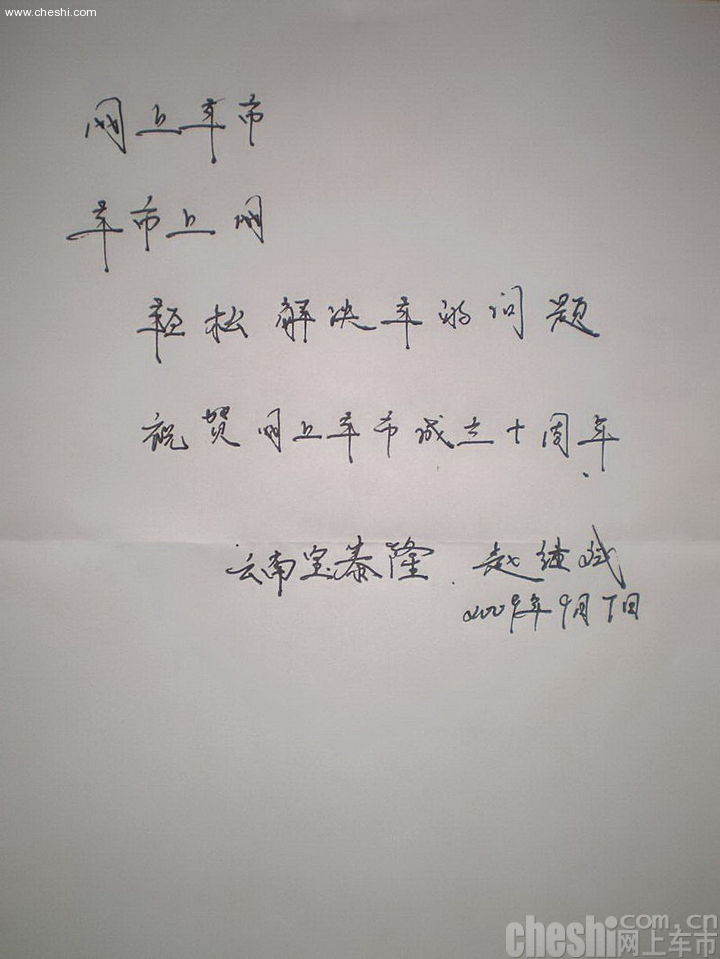 www.cheshi.com
网上车市
车市上网
轻松解决车的问题
祝贺网上车市成立十周年.
云南宝泰隆. 赵继
2009年9月7日
cheshi.com.cn
网上车市